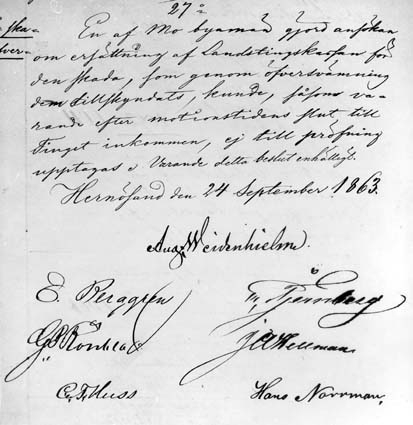 27.
En af Mo byamän gjord ansökan
om ersättning af Landstingskassan för
den skada, som genom öfversvämning
dem tillskyndats, kunde, såsom va-
rande efter motionstidens slut till
Tinget inkommen, ej till pröfning
upptagas; Varande detta beslut enhälligt.
Hernösand den 24 September 1863.
Aug. Weidenhielm.
E. Berggren
Fr. Tjernberg
J A Hellman
C. F. Huss
Hans Norrman.